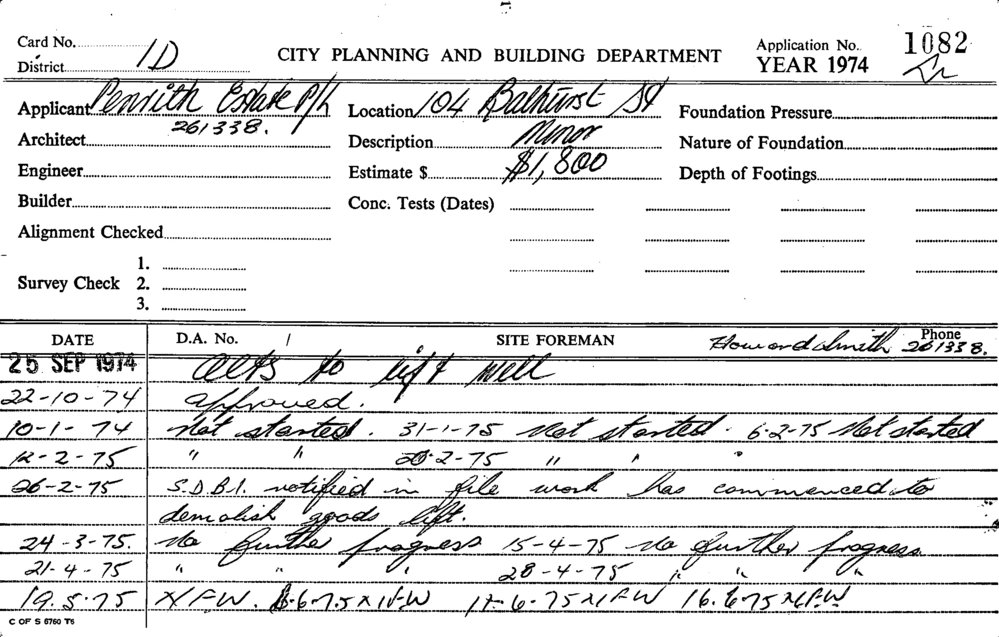 Card No. 1D CITY PLANNING AND BUILDING DEPARTMENT Application No. 1082
District YEAR 1974
Applicant Penrith Estate P/L Location 104 Bathurst St Foundation Pressure
261338.
Architect Description Minor Nature of Foundation
Engineer Estimate $ $1,800 Depth of Footings
Builder Conc. Tests (Dates)
Alignment Checked
1.
Survey Check 2.
3.
DATE D.A. No. / SITE FOREMAN Howard Smith Phone 261338.
25 SEP 1974 Alts to lift well
22-10-74 approved.
10-1-74 Not started. 31-1-75 Not started. 6-2-75 Not started
12-2-75 " " 20-2-75 " " "
26-2-75 S.D.B.I. notified in file work has commenced to
demolish goods lift.
24-3-75. No further progress 15-4-75 No further progress
21-4-75 " " " 28-4-75 " " "
19.5.75 NFW. 6.75 NFW 6-75 NFW 16.6.75 NFW
C OF S 6760 T6